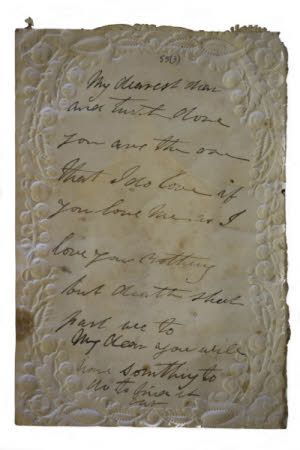 55(3)
My dearest dear
and turtl dove
you are the one
that I do love if
you love me as I
love you Nothing
but death shal
part us to
My dear you will
have somthing to
do to find it
out